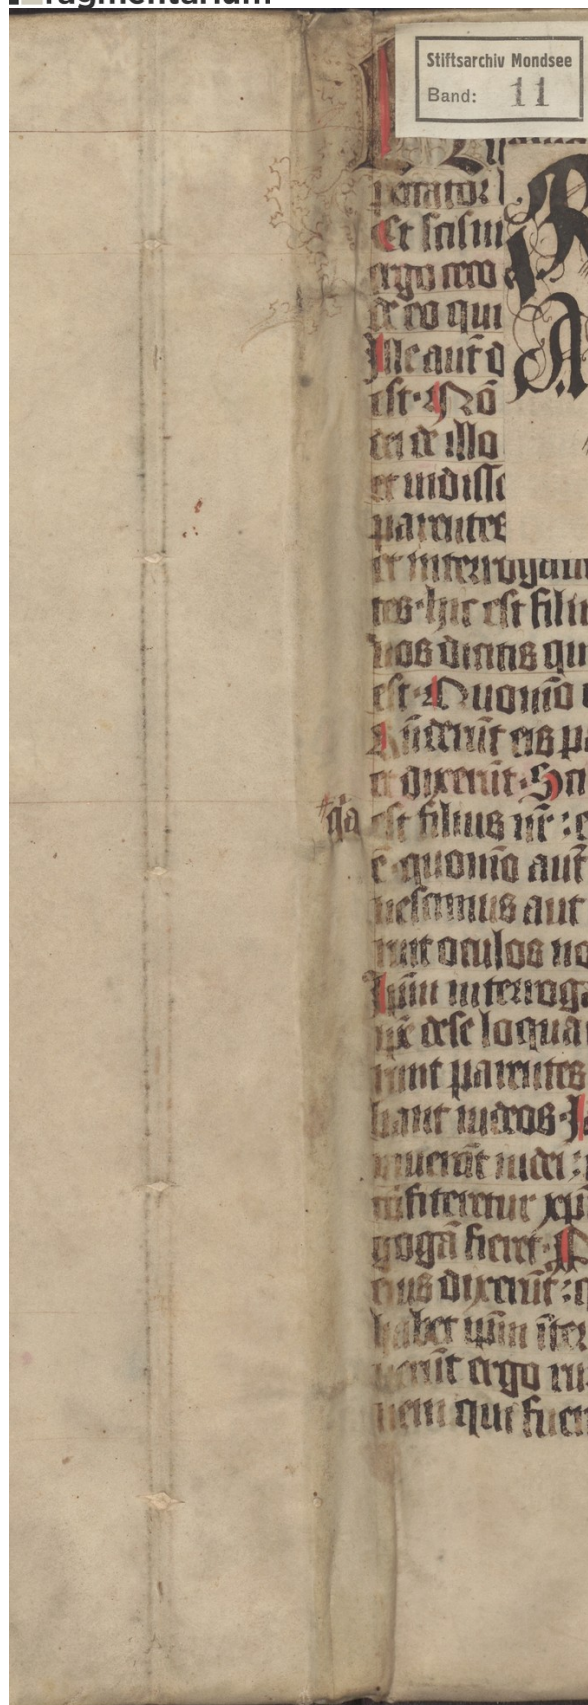 fragmentarium
Stiftsarchiv Mondsee
Band: 11
peccator
Et scism
ergo ceco
de eo qui
Ille aut̄ d
est. Nō
dei de illo
et uidisse
parentes
et interrogaue
tes. hic est filiu
uos dicitis qu
est. Quomō
Rn̄derūt eis pa
et dixerūt. Sci
qa est filius nr̄ : e
ē. quomō aut̄
nescimus aut
ruit oculos no
Ip̄m interroga
ip̄e de se loqua
runt parentes
bant iudeos. I
rauerāt iudei :
cōfiteretur xp̄m
gogā fieret. P
eius dixerūt : q
habet ip̄m īter
uerūt ergo ru
nem qui fuer